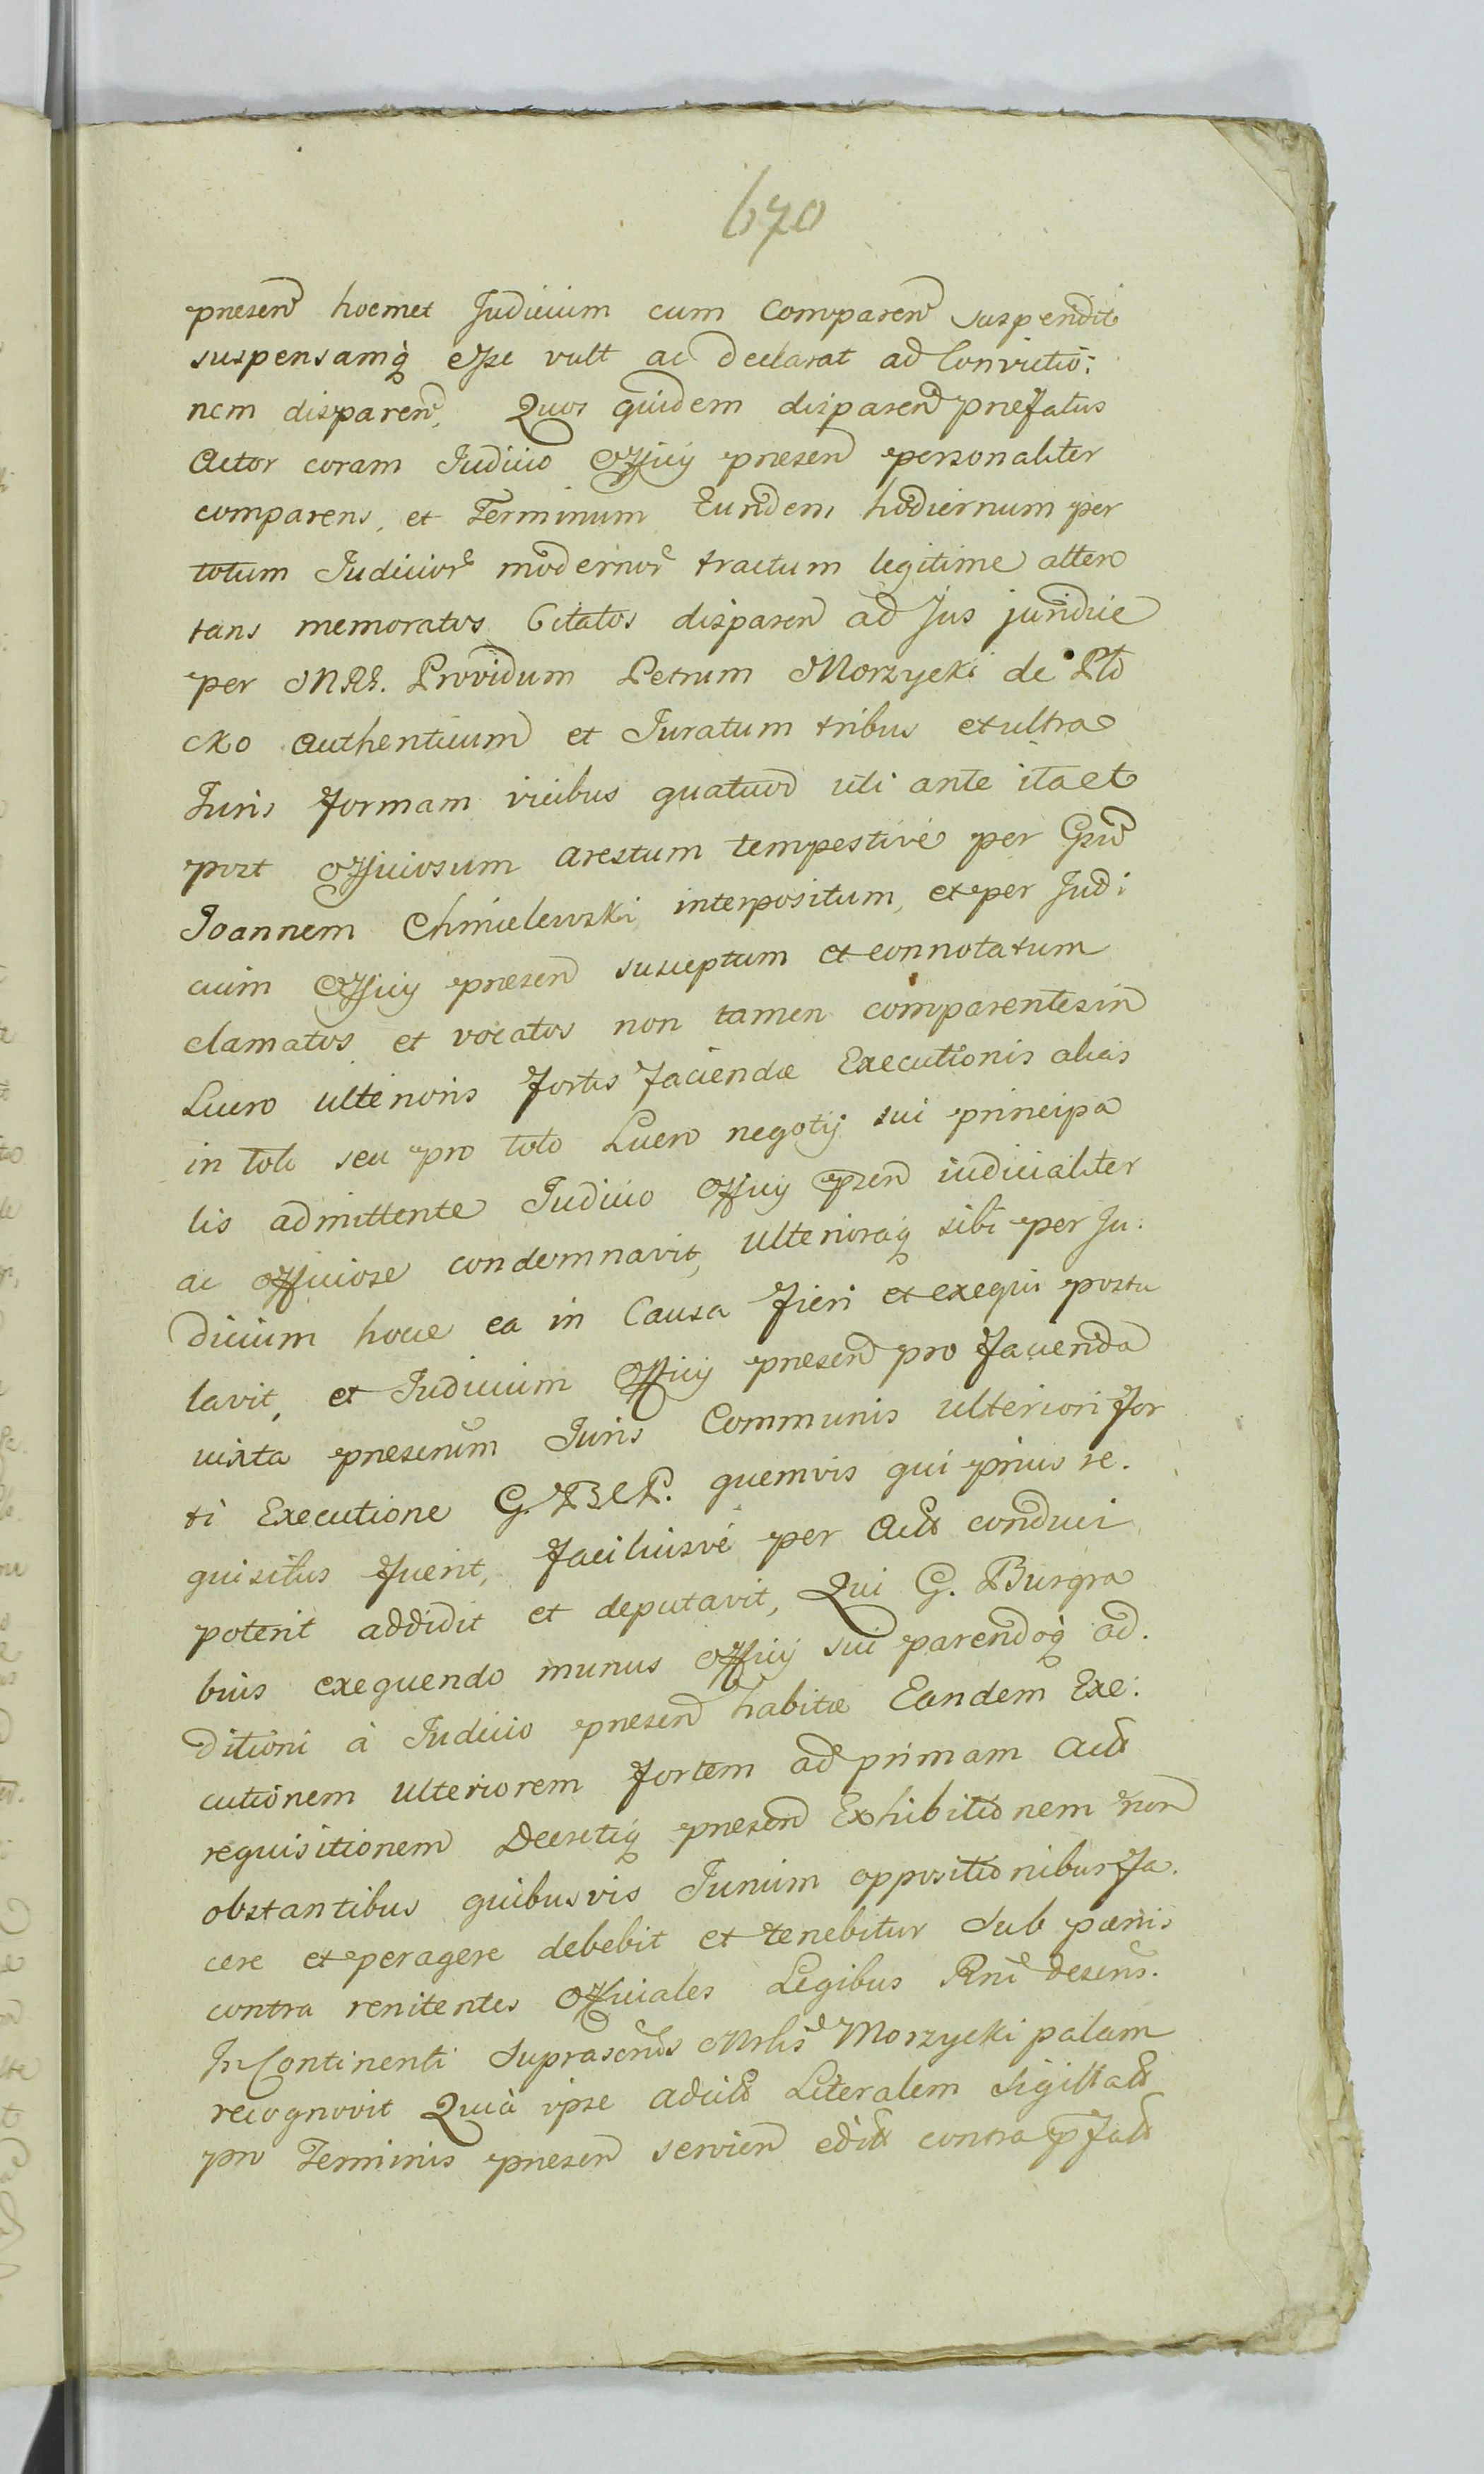 670
præsen hocmet Judicium cum Comparen suspendit
suspensamq esse vult ac declarat ad Convictio:
nem disparen, Quos quidem disparen præfatus
Actor coram Judicio Officij præsen personaliter
comparens, et Terminum Eundem hodiernum per
totum Judicior modernor tractum legitime atten
tans memoratos Citatos disparen ad Jus juridice
per MRS. Providum Petrum Morzycki de Plo
cko Authenticum et Juratum tribus et ultra
Juris formam vicibus quatuor uti ante ita et
post officiosum arestum tempestive per Gsum
Joannem Chmielewski interpositum, et per Judi
cium Officij præsen susceptum et connotatum
clamatos et vocatos non tamen comparentes in
Lucro ulterioris fortis faciendæ Executionis alias
in toto seu pro toto Lucro negotij sui principa
lis admittente Judicio Officij præsen iudicialiter
ac officiose condemnavit, ulterioraq sibi per Ju:
dicium hocce ea in Causa fieri et exequi postu
lavit, et Judicium Officij præsen pro facienda
iuxta præscrium Juris Communis ulteriori for
ti Executione G. B C P. quemvis qui prius re.
quisitus fuerit, faciliusve per Act conduci
poterit addidit et deputavit, Qui G. Burgra
bius exequendo munus officij sui parendoq ad.
ditioni à Judicio præsen habitæ Eandem Exe:
cutionem ulteriorem fortem ad primam Act
requisitionem Decretiq præsen Exhibitionem non
obstantibus quibusvis Jurium oppositionibus fa.
cere et peragere debebit et tenebitur sub pænis
contra renitentes Officiales Legibus Rni descris.
In Continenti suprascris Mrlis Morzycki palam
recognovit Quià ipse adcit Literalem sigillat
pro Terminis præsen servien edit contra præfat